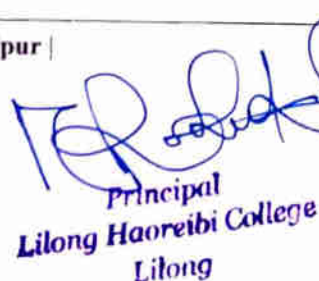 pur |
Principal
Lilong Haoreibi College
Lilong